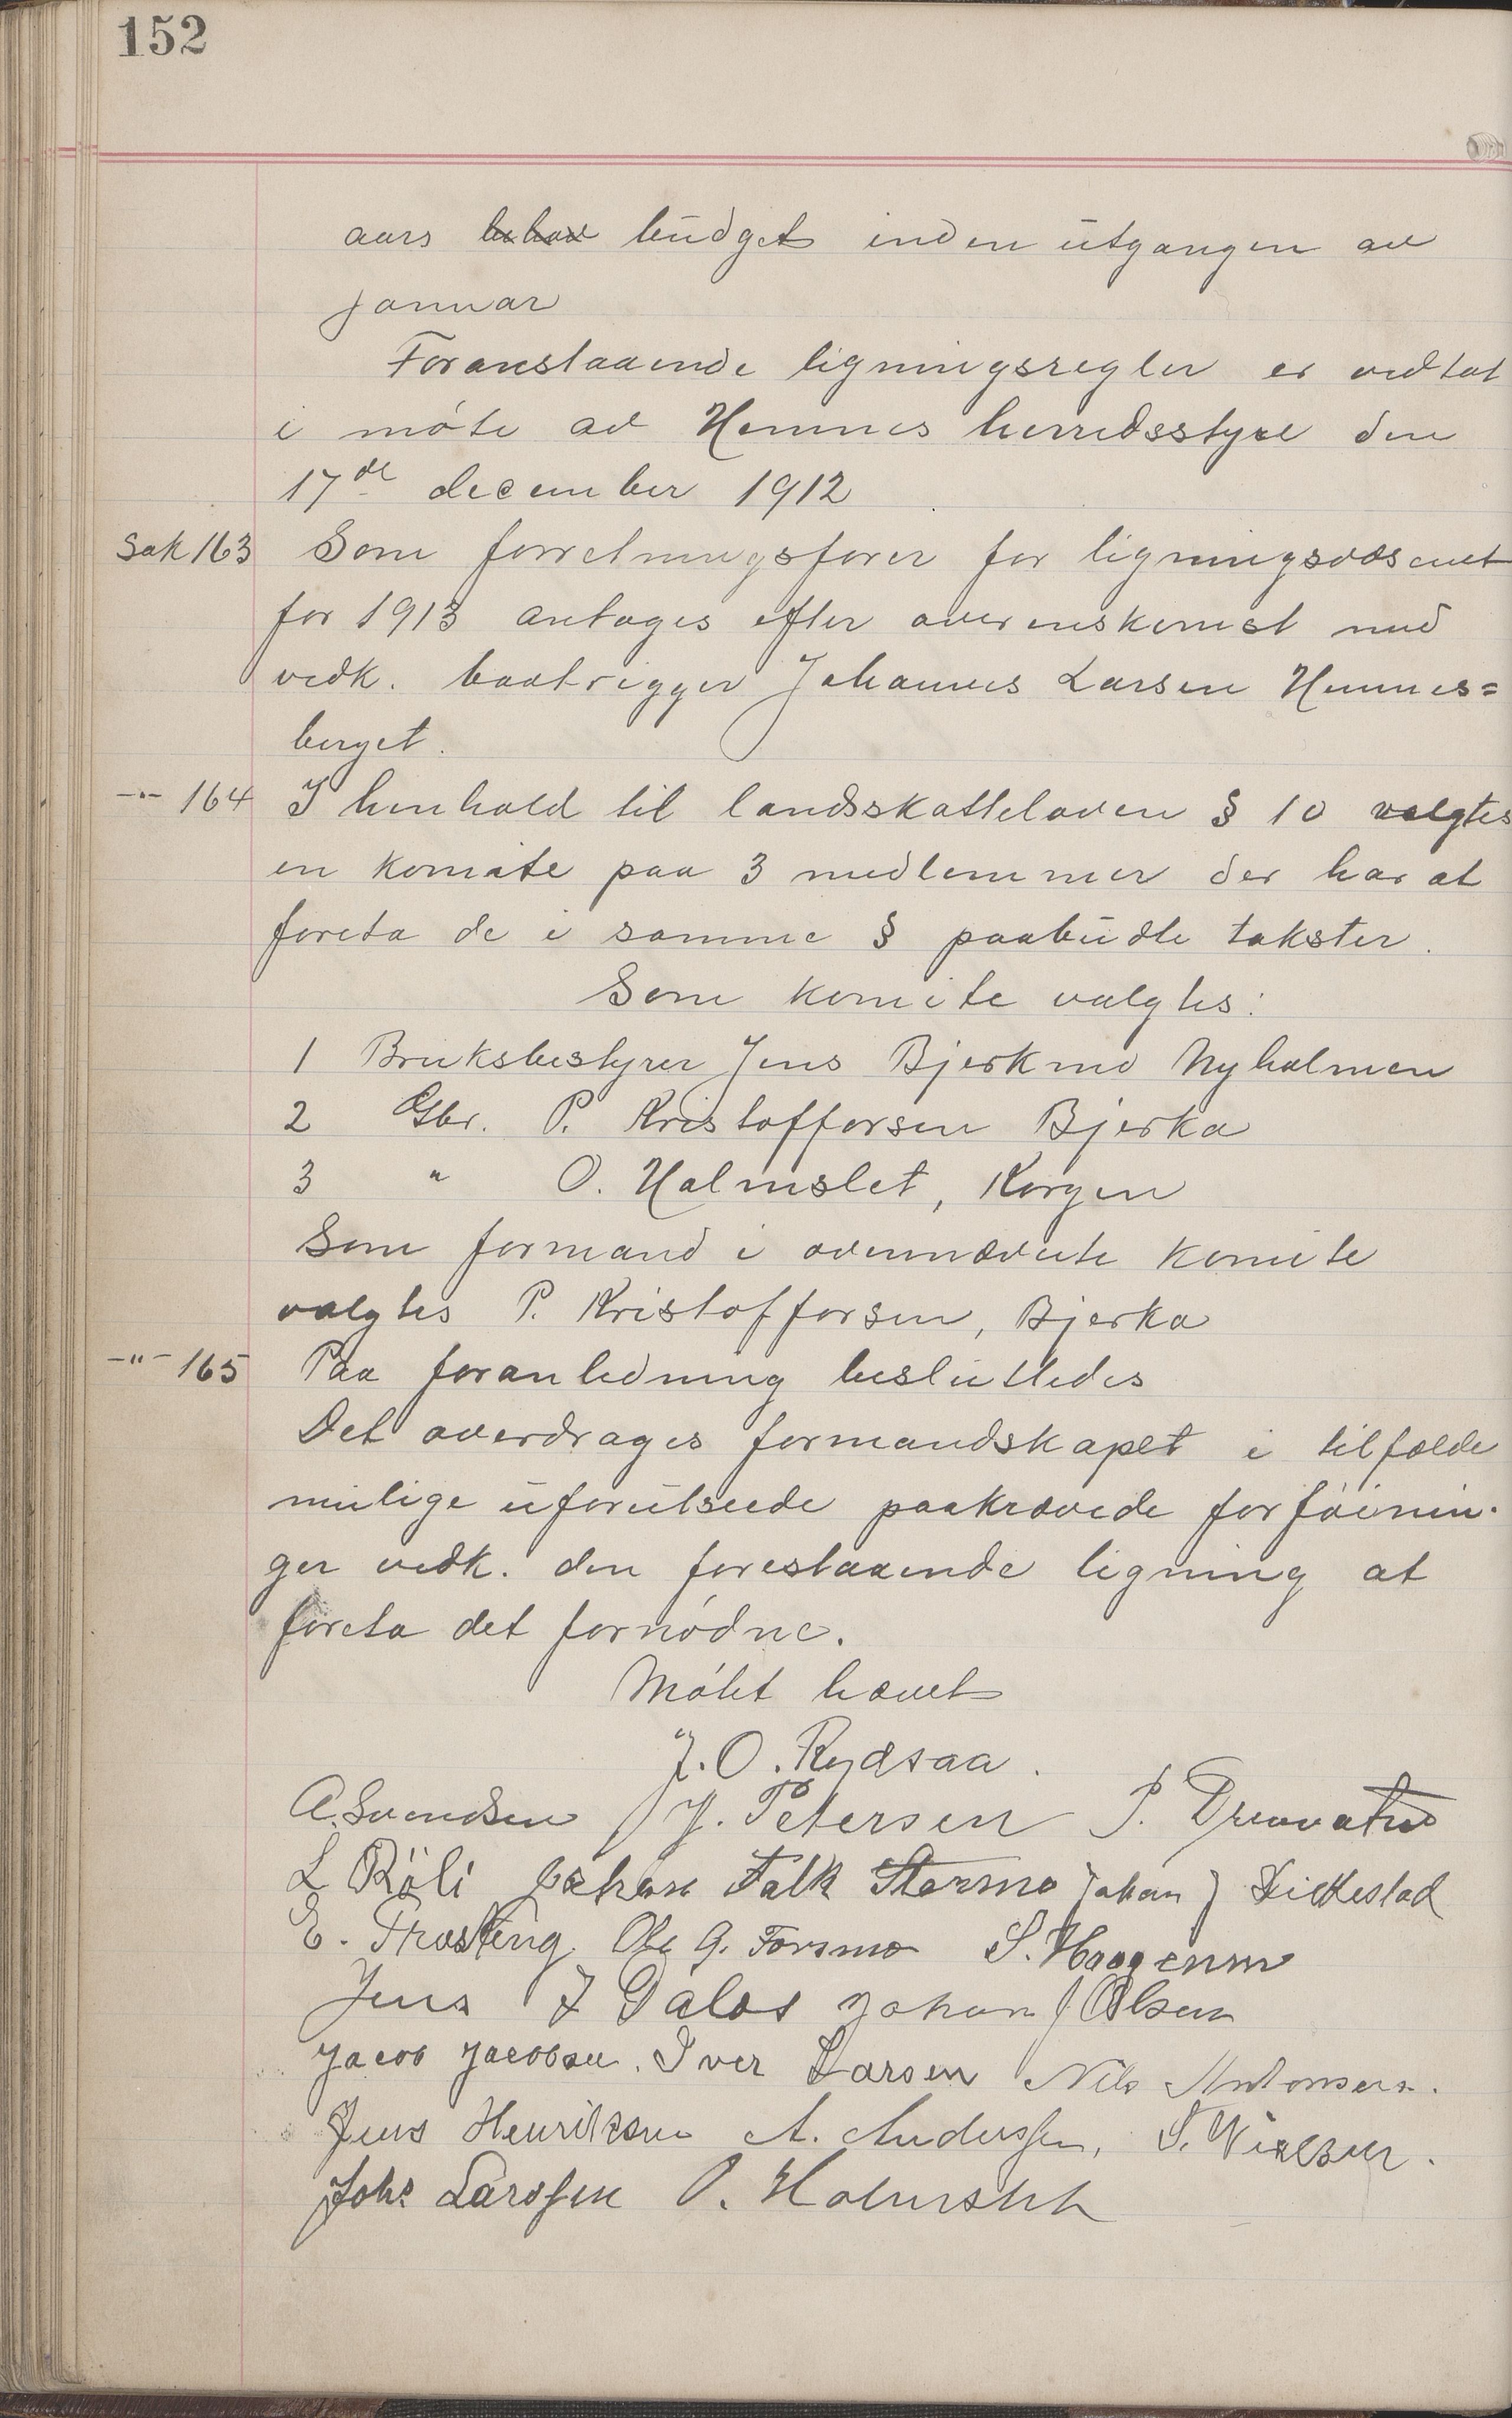 152
aars behov budget inden utgangen av
januar
Foranstaaende ligningsregler er vedtat
i møte av Hemnes herredsstyre den
17de december 1912
Sak 163 Som forretningsfører for ligningsvæsenet
for 1913 antages efter overenskomst med
vedk. baatrigger Johannes Larsen Hemnes=
berget.
-"- 164 I henhold til landsskatteloven § 10 valgtes
en komite paa 3 medlemmer der har at
foreta de i samme § paabudte takster.
Som komite valgtes:
1 Bruksbestyrer Jens Bjerkmo Nyholmen
2 Gbr. P. Kristoffersen Bjerka
3 " O. Halmslet, Korgen
Som formand i ovennævnte komite
valgtes P. Kristoffersen, Bjerka
-"- 165 Paa foranledning besluttedes
Det overdrages formandskapet i tilfælde
mulige uforutseede paakrævede forføinin-
ger vedk. den forestaaende ligning at
foreta det fornødne.
Møtet hævet
J. O. Rydsaa.
A. Svendsen J. Petersen P.
L Røli Johan Falk Stormo Johan J
E. Ole G. Forsmo S. Haagensen
Jens J Dalos Johan J Olsen
Jacob Jacobsen. Iver Larsen Nils Antonsen.
Jens Henriksen A. Anderssen, S. Nielsen.
Johs Larssen O. Halmslet